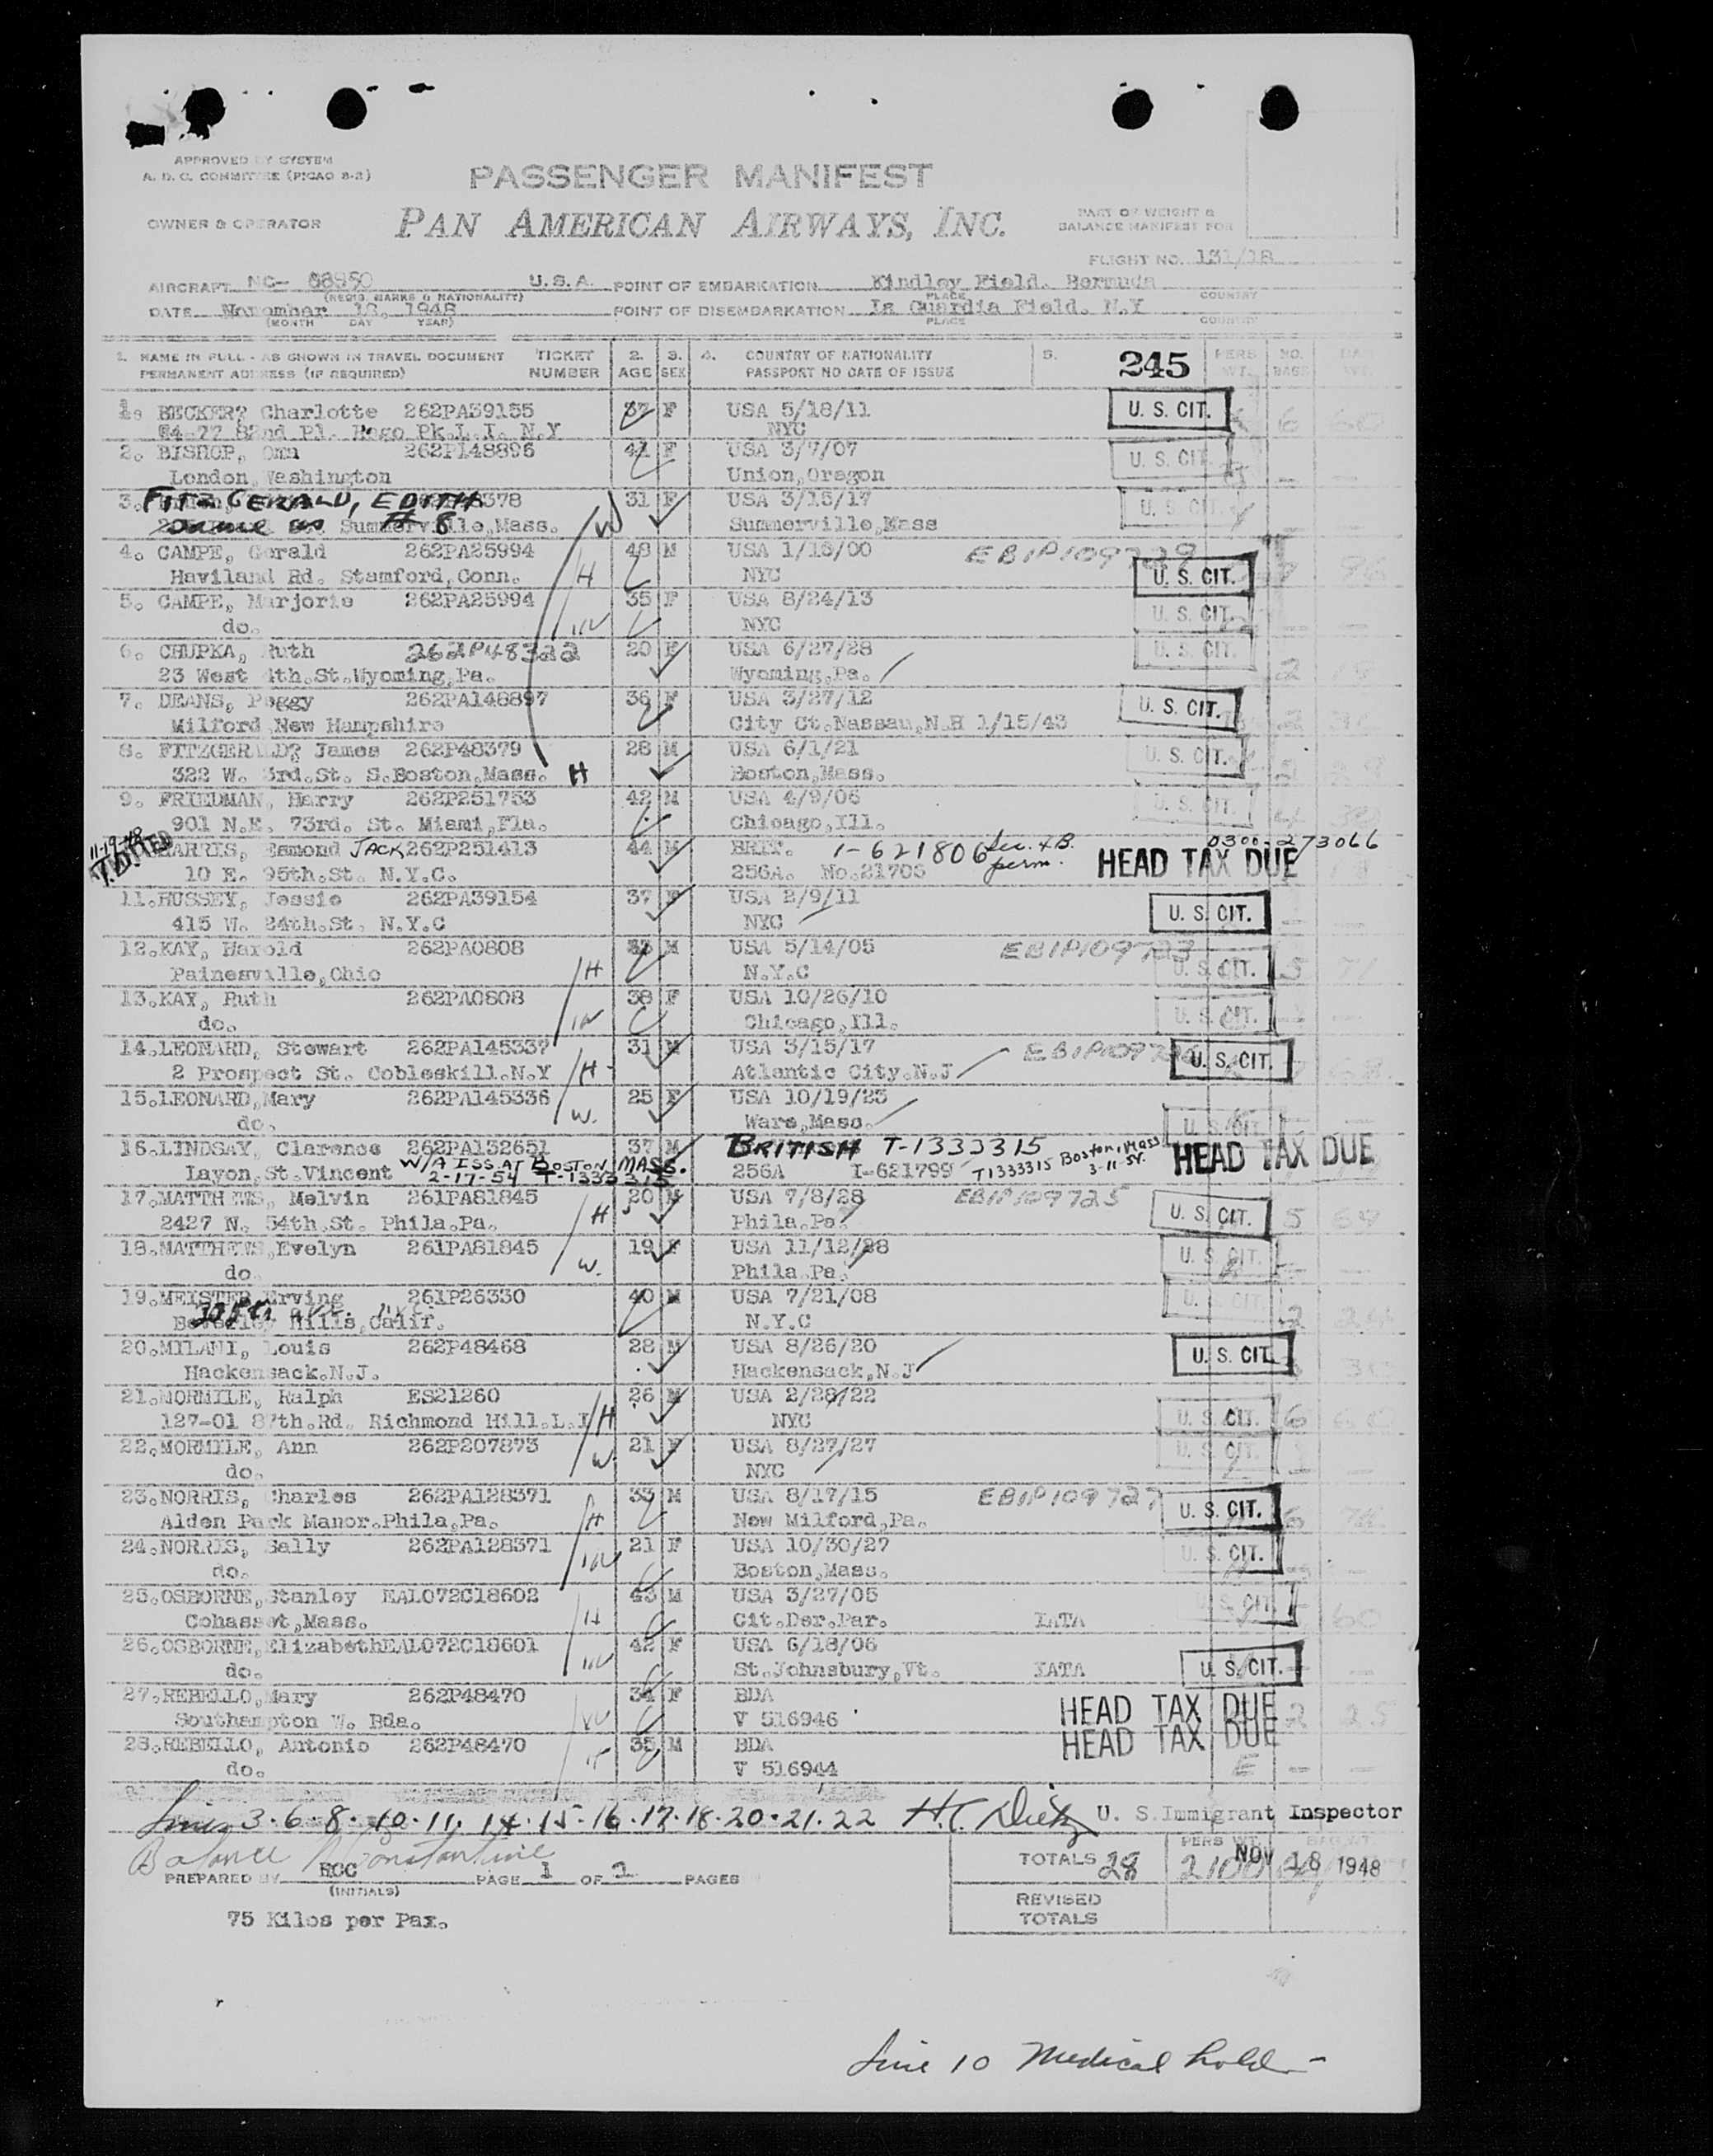 APPROVED BY SYSTEM
A. D. C. COMMITTEE (PICAO 8-2)
PASSENGER MANIFEST
OWNER & OPERATOR
PAN AMERICAN AIRWAYS, INC.
PART OF WEIGHT &
BALANCE MANIFEST FOR
FLIGHT NO. 131/18
AIRCRAFT NC- 88950 U.S.A. POINT OF EMBARKATION Kindley Field. Bermuda
(REGIS. MARKS & NATIONALITY) PLACE COUNTRY
DATE November 18, 1948 POINT OF DISEMBARKATION La Guardia Field. N.Y
(MONTH DAY YEAR) PLACE COUNTRY
1. NAME IN FULL - AS SHOWN IN TRAVEL DOCUMENT TICKET 2. 3. 4. COUNTRY OF NATIONALITY 5. 245 PERS NO.
PERMANENT ADDRESS (IF REQUIRED) NUMBER AGE SEX PASSPORT NO DATE OF ISSUE WT. BAGS
1. BECKER? Charlotte 262PA39155 37 F USA 5/18/11 U. S. CIT. 6 60
64-77 82nd Pl. Rego Pk.L.I. N.Y NYC
2. BISHOP, Oma 262P148896 41 F USA 3/7/07 U. S. CIT
London, Washington Union,Oregon
3. FITZGERALD, EDITH 378 31 F USA 3/15/17 U. S. CIT
same as # 8 Summerville,Mass. W Summerville,Mass
4. CAMPE, Gerald 262PA25994 48 M USA 1/16/00 EB1P109729
Haviland Rd. Stamford,Conn. H NYC U. S. CIT. 96
5. CAMPE, Marjorie 262PA25994 35 F USA 8/24/13 U. S. CIT.
do. W NYC
6. CHUPKA, Ruth 262P48322 20 F USA 6/27/28 U. S. CIT.
23 West 4th.St.Wyoming,Pa. Wyoming,Pa. 2
7. DEANS, Peggy 262PA148897 36 F USA 3/27/12 U. S. CIT.
Milford,New Hampshire City Ct.Nassau,N.H 1/15/43 2
8. FITZGERALD? James 262P48379 28 M USA 6/1/21 U. S. CIT.
322 W. 3rd.St. S.Boston,Mass. H Boston,Mass.
9. FRIEDMAN, Harry 262P251753 42 M USA 4/9/06 U. S. CIT.
901 N.E. 73rd. St. Miami,Fla. Chicago,Ill. 4
11-19-48
HARRIS, Esmond JACK 262P251413 44 M BRIT. 1-621806 Sec. 4B. perm. 0300-273066
10 E. 95th.St. N.Y.C. 256A. No.21706 HEAD TAX DUE
11. HUSSEY, Jessie 262PA39154 37 F USA 2/9/11
415 W. 24th.St. N.Y.C NYC U. S. CIT.
12. KAY, Harold 262PA0808 M USA 5/14/05 EB1P109723
Painesville,Ohio H N.Y.C U. S. CIT. 5 71
13. KAY, Ruth 262PA0808 38 F USA 10/26/10
do. W Chicago,Ill. U. S. CIT.
14. LEONARD, Stewart 262PA145337 31 M USA 3/15/17
2 Prospect St. Cobleskill.N.Y H Atlantic City.N.J U. S. CIT.
15. LEONARD,Mary 262PA145336 25 F USA 10/19/23
do. W. Ware,Mass. U. S. CIT.
16. LINDSAY, Clarence 262PA132651 37 M BRITISH T-1333315 HEAD TAX DUE
Layon,St.Vincent W/A ISS AT BOSTON MASS. 256A I-621799 T1333315 Boston, Mass
2-17-54 T-1333315 3-11-54.
17. MATTHEWS, Melvin 261PA81845 20 M USA 7/8/28 EB1P109725
2427 N. 54th.St. Phila.Pa. H Phila.Pa. U. S. CIT. 5 64
18. MATTHEWS,Evelyn 261PA81845 19 F USA 11/12/28 U. S. CIT.
do W. Phila.Pa.
19. MEISTER Erving 261P26330 40 M USA 7/21/08 U. S. CIT.
Beverley Hills,Calif. N.Y.C 2 24
20. MILANI, Louis 262P48468 28 M USA 8/26/20
Hackensack.N.J. Hackensack,N.J U. S. CIT. 30
21. MORMILE, Ralph ES21260 26 M USA 2/28/22
127-01 87th.Rd. Richmond Hill.L.I H NYC U. S. CIT. 6
22. MORMILE, Ann 262P207873 21 F USA 8/27/27 U. S. CIT.
do. W. NYC
23. NORRIS, Charles 262PA128371 33 M USA 8/17/15 EB1P109727
Alden Park Manor.Phila,Pa. H New Milford,Pa. U. S. CIT. 6
24. NORRIS, Sally 262PA128371 21 F USA 10/30/27 U. S. CIT.
do. W Boston,Mass.
25. OSBORNE,Stanley EAL072C18602 43 M USA 3/27/05 S. CIT.
Cohasset,Mass. H Cit.Der.Par. IATA 60
26. OSBORNE,ElizabethEAL072C18601 42 F USA 6/18/06
do. W St.Johnsbury,Vt. IATA U. S. CIT.
27. REBELLO,Mary 262P48470 34 F BDA HEAD TAX DUE 2 25
Southampton W. Bda. W V 516946
28. REBELLO, Antonio 262P48470 35 M BDA HEAD TAX DUE
do. H V 516944 E
Lines 3-6-8-10-11. 14-15-16-17-18-20-21-22 H.C. Dietz U. S. Immigrant Inspector
Balance Constantine
PREPARED BY HCC PAGE 1 OF 2 PAGES
(INITIALS)
TOTALS 28 PERS WT. 2100 NOV 18 1948
REVISED
TOTALS
75 Kilos per Pax.
Line 10 Medical hold -